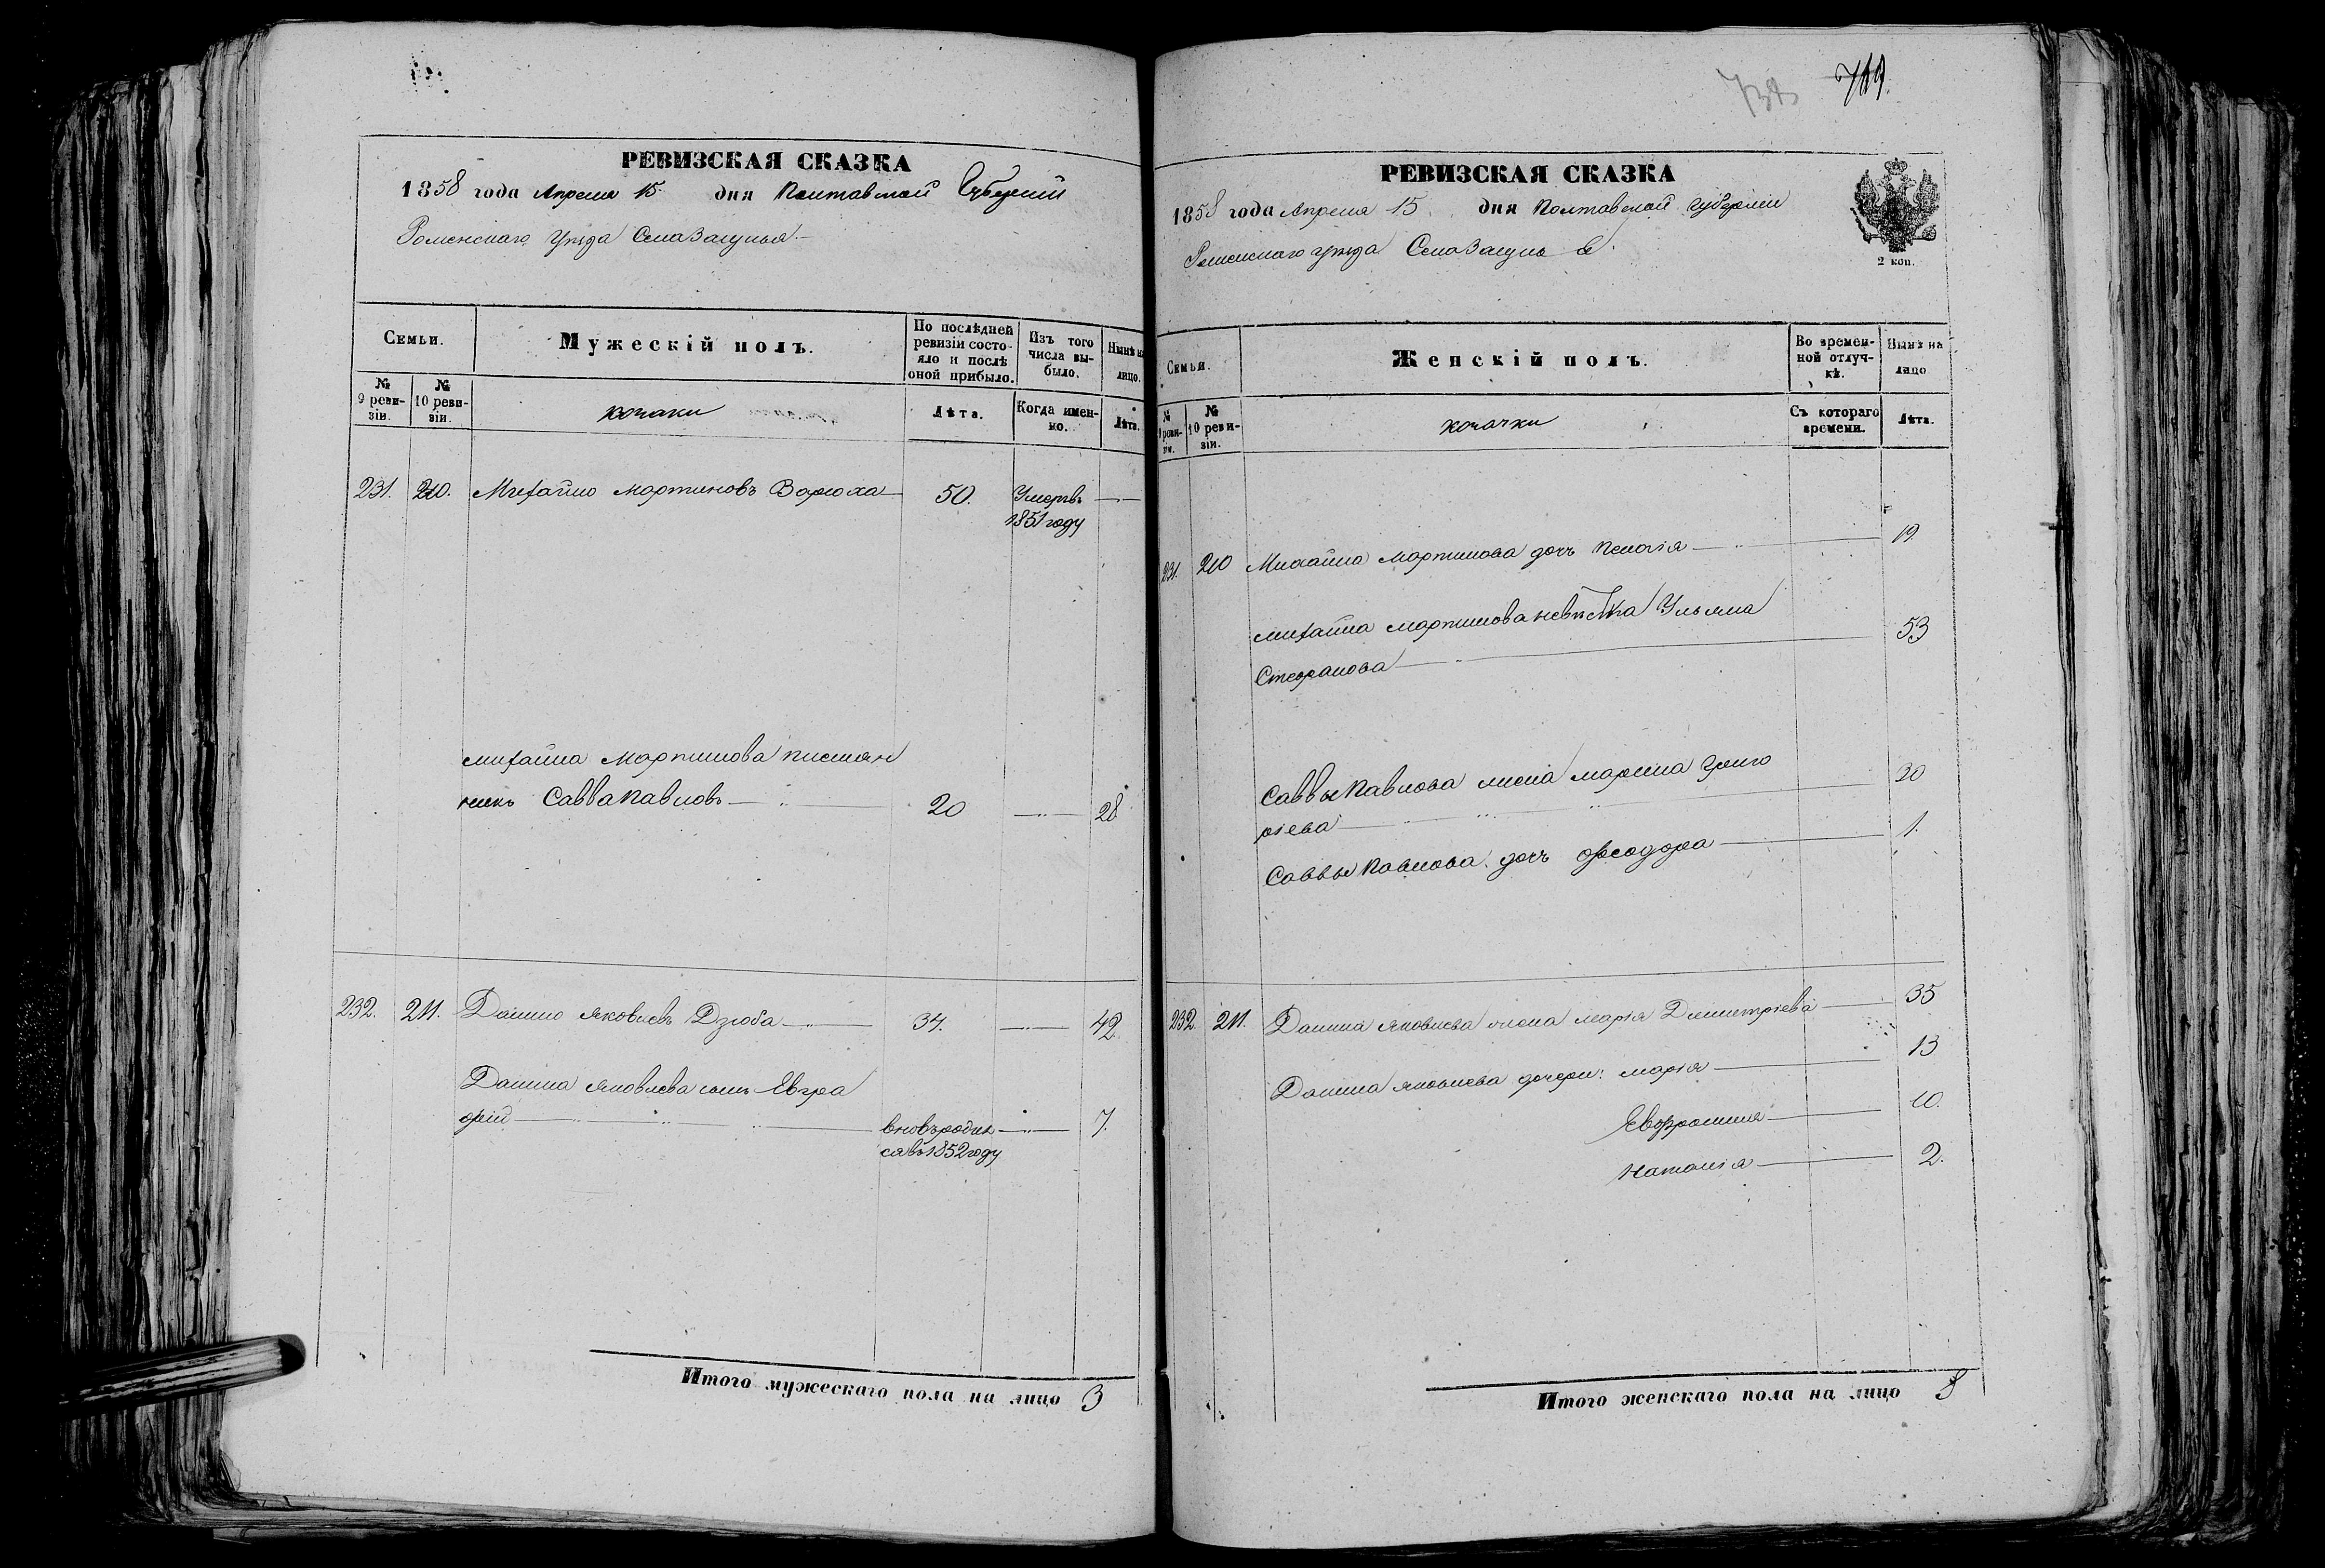 РЕВИЗСКАЯ СКАЗКА
1858 года Апреля 15 дня Полтавской Губерніи
Роменскаго Уѣзда Села Засулья
Семьи.
Мужескій полъ.
По послѣдней ревизіи состояло и послѣ оной прибыло.
Изъ того числа выбыло.
Нынѣ на лицо.
№ 9 ревизіи.
№ 10 ревизіи.
козаки
Лѣта.
Когда именно.
Лѣта.
231. 210. Михайло Мартиновъ Варюха 50. Умеръ
1851 году
Михайла Мартинова племян
никъ Савва Павловъ 20 28
232. 211. Данило Яковлевъ Дзюба 34. 42.
Данила Яковлева сынъ Евгра
фій вновь родил 7.
ся въ 1852 году
Итого мужескаго пола на лицо 3
719.
РЕВИЗСКАЯ СКАЗКА
1858 года Апреля 15 дня Полтавской Губерніи
Роменскаго уѣзда Села Засулья
2 коп.
Семьи.
Женскій полъ.
Во временной отлучкѣ.
Нынѣ на лицо
№ 9 ревизіи.
№ 10 ревизіи.
козачки
Съ котораго времени.
Лѣта.
231. 210 Михайла Мартинова дочь Пелагія 19.
Михайла Мартинова невѣстка Ульяна
Стефанова 53
Саввы Павлова жена Марина Григо
ріева 30
Саввы Павлова дочь Феодора 1.
232. 211. Данила Яковлева жена Марія Димитріева 35
Данила Яковлева дочери: Марія 13
Евфросинія 10.
Наталія 2.
Итого женскаго пола на лицо 8